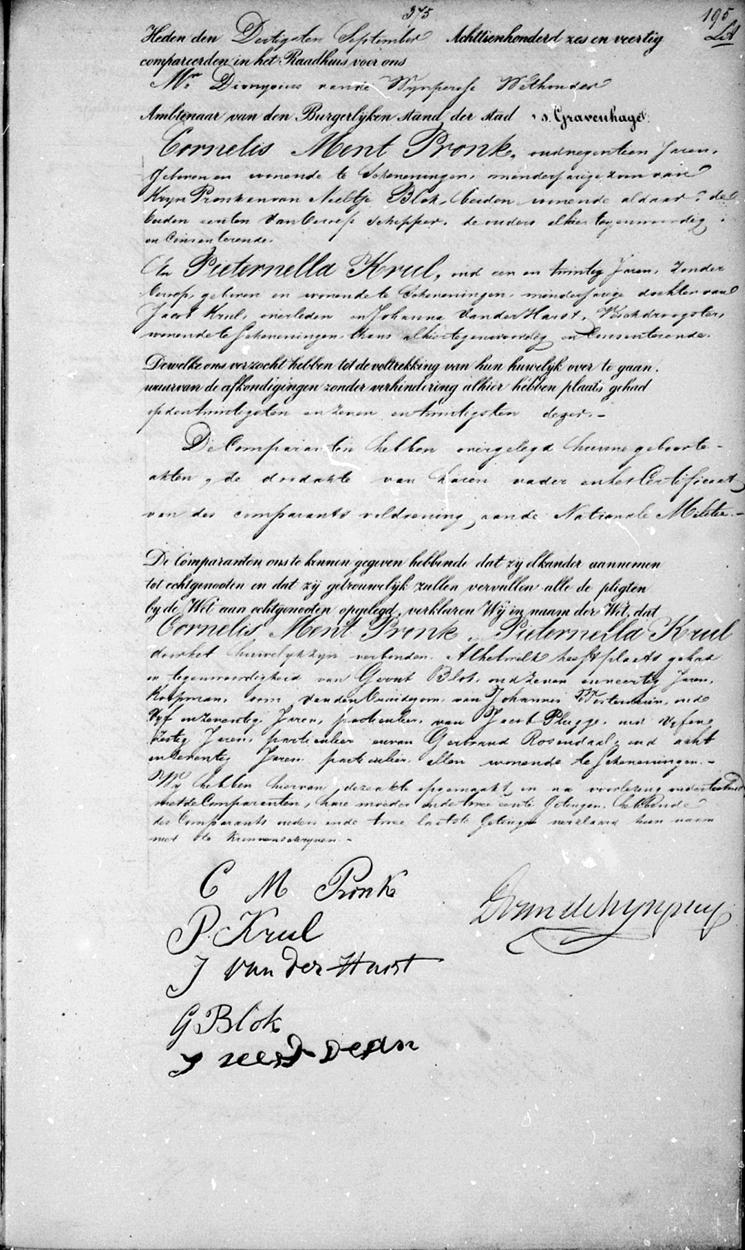 375
195
Heden den Dertigsten September Achttienhonderd zes en veertig
compareerden in het Raadhuis voor ons
Mr Dionysius vande Wynpersse Wethouder
Ambtenaar van den Burgerlyken stand der stad 's Gravenhage:
Cornelis Ment Pronk, oud negentien Jaren,
geboren en wonende te Scheveningen, minderjarige zoon van
Kryn Pronk en van Neeltje Blok, beiden wonende aldaar, de
beiden eersten van beroep schipper, de ouders alhier tegenwoordig
en Consenterende.
En Pieternella Krul, oud een en twintig Jaren, zonder
beroep, geboren en wonende te Scheveningen, minderjarige dochter van
Jacob Krul, overleden en Johanna van der Harst, Vischdroogster,
wonende te Scheveningen thans alhier tegenwoordig en Consenterende.
Dewelke ons verzocht hebben tot de voltrekking van hun huwelijk over te gaan,
waarvan de afkondigingen zonder verhindering alhier hebben plaats gehad
op den twintigsten en zeven en twintigsten dezer.-
De Comparanten hebben overgelegd hunne geboorte-
akten, de doodakte van haren vader en het Certificaat
van des comparants voldoening aan de Nationale Militie.-
De Comparanten ons te kennen gegeven hebbende dat zij elkander aannemen
tot echtgenooten en dat zij getrouwelijk zullen vervullen alle de pligten
by de Wet aan echtgenooten opgelegd, verklaren Wij in naam der Wet, dat
Cornelis Ment Pronk, Pieternella Krul
door het huwelyk zyn verbonden. Al hetwelk heeft plaats gehad
in tegenwoordigheid van Govert Blok, oud zeven en veertig Jaren,
Koopman, oom van den Bruidegom, van Johannes Westerduin, oud
Vyf en zeventig Jaren, particulier, van Jacob Plugge, oud Vyf en
zestig Jaren, particulier en van Gerbrand Rosendaal, oud acht
en zeventig Jaren particulier, allen wonende te Scheveningen.-
Wy hebben hiervan deze akte opgemaakt en na voorlezing onderteekend
met de Comparanten, hare moeder en de twee eerste Getuigen, hebbende
des Comparants ouders en de twee laatste Getuigen verklaard hun naam
niet te kunnen schryven.-
C M Pronk
P. Krul
J van der Harst
G Blok